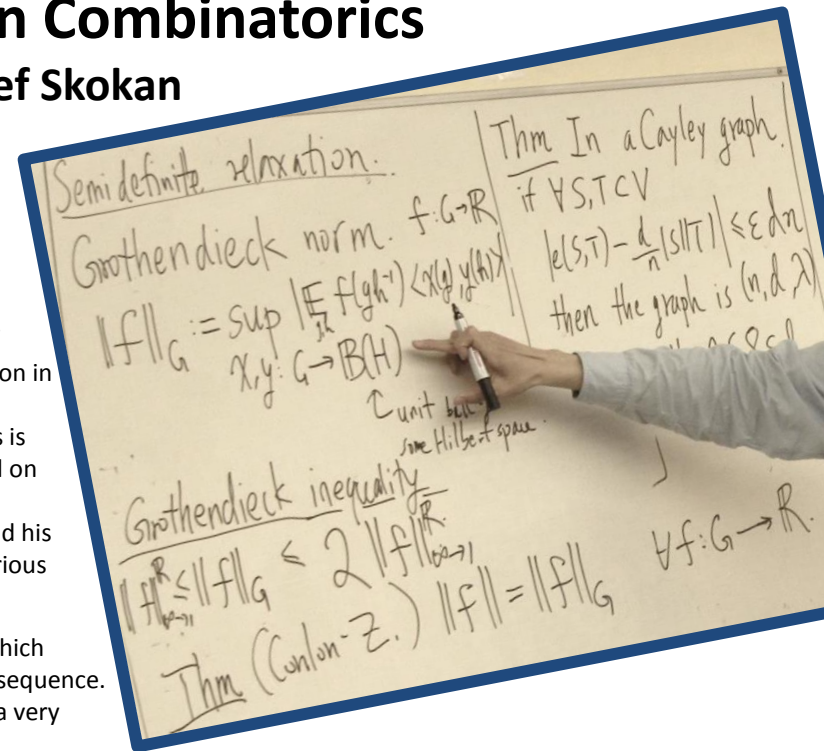 n Combinatorics
ef Skokan
on in
s is
d on
d his
rious
hich
sequence.
a very
Semidefinite relaxation.
Grothendieck norm. f: G→R
‖f‖_G := sup |E f(gh⁻¹) <x(g), y(h)>|
x,y: G→B(H)
↑ unit ball
some Hilbert space.
Grothendieck inequality
‖f‖^R_∞→1 ≤ ‖f‖_G ≤ 2‖f‖^R_∞→1
Thm (Conlon-Z.) ‖f‖ = ‖f‖_G ∀f: G→R.
Thm In a Cayley graph.
if ∀S,T⊂V
|e(S,T) - d/n |S||T|| ≤ εdn
then the graph is (n,d,λ)